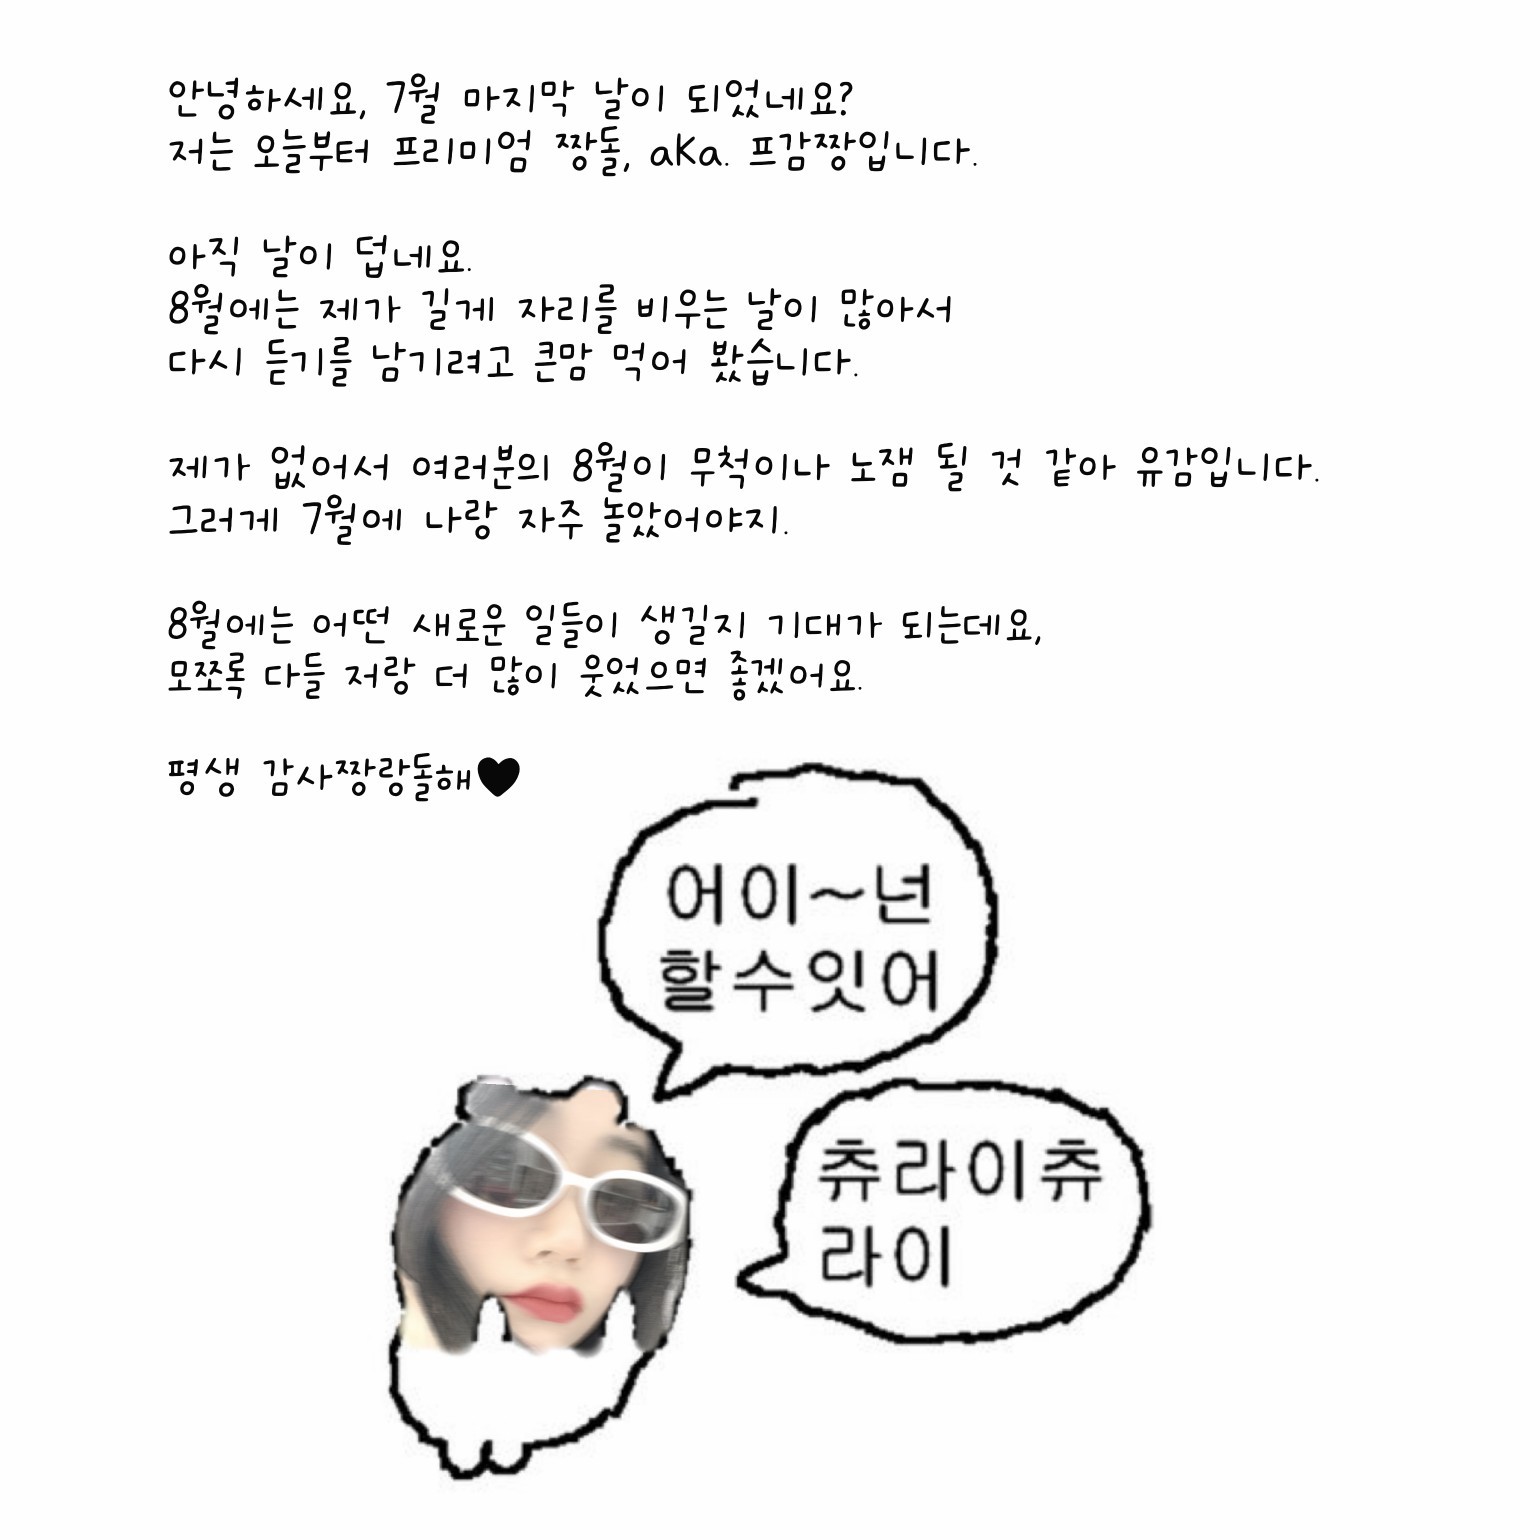 안녕하세요, 7월 마지막 날이 되었네요?
저는 오늘부터 프리미엄 짱돌, aKa. 프감짱입니다.
아직 날이 덥네요.
8월에는 제가 길게 자리를 비우는 날이 많아서
다시 듣기를 남기려고 큰맘 먹어 봤습니다.
제가 없어서 여러분의 8월이 무척이나 노잼 될 것 같아 유감입니다.
그러게 7월에 나랑 자주 놀았어야지.
8월에는 어떤 새로운 일들이 생길지 기대가 되는데요,
모쪼록 다들 저랑 더 많이 웃었으면 좋겠어요.
평생 감사짱랑돌해♥
어이~넌
할수잇어
츄라이츄
라이